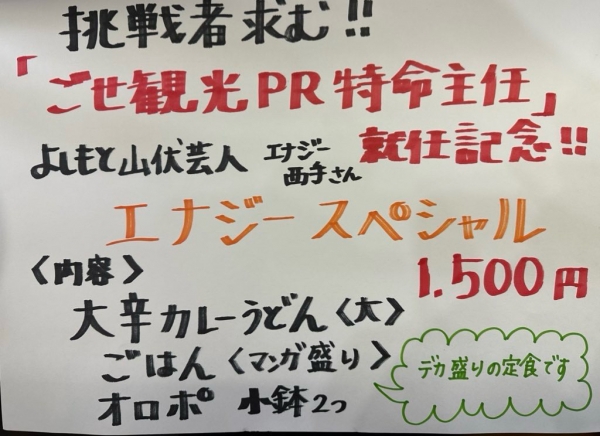 挑戦者求む!!
「ごせ観光PR特命主任」
就任記念!!
よしもと山伏芸人 エナジー西手さん
エナジースペシャル
〈内容〉
1.500円
大辛カレーうどん〈大〉
ごはん〈マンガ盛り〉
オロポ 小鉢2つ
デカ盛りの定食です